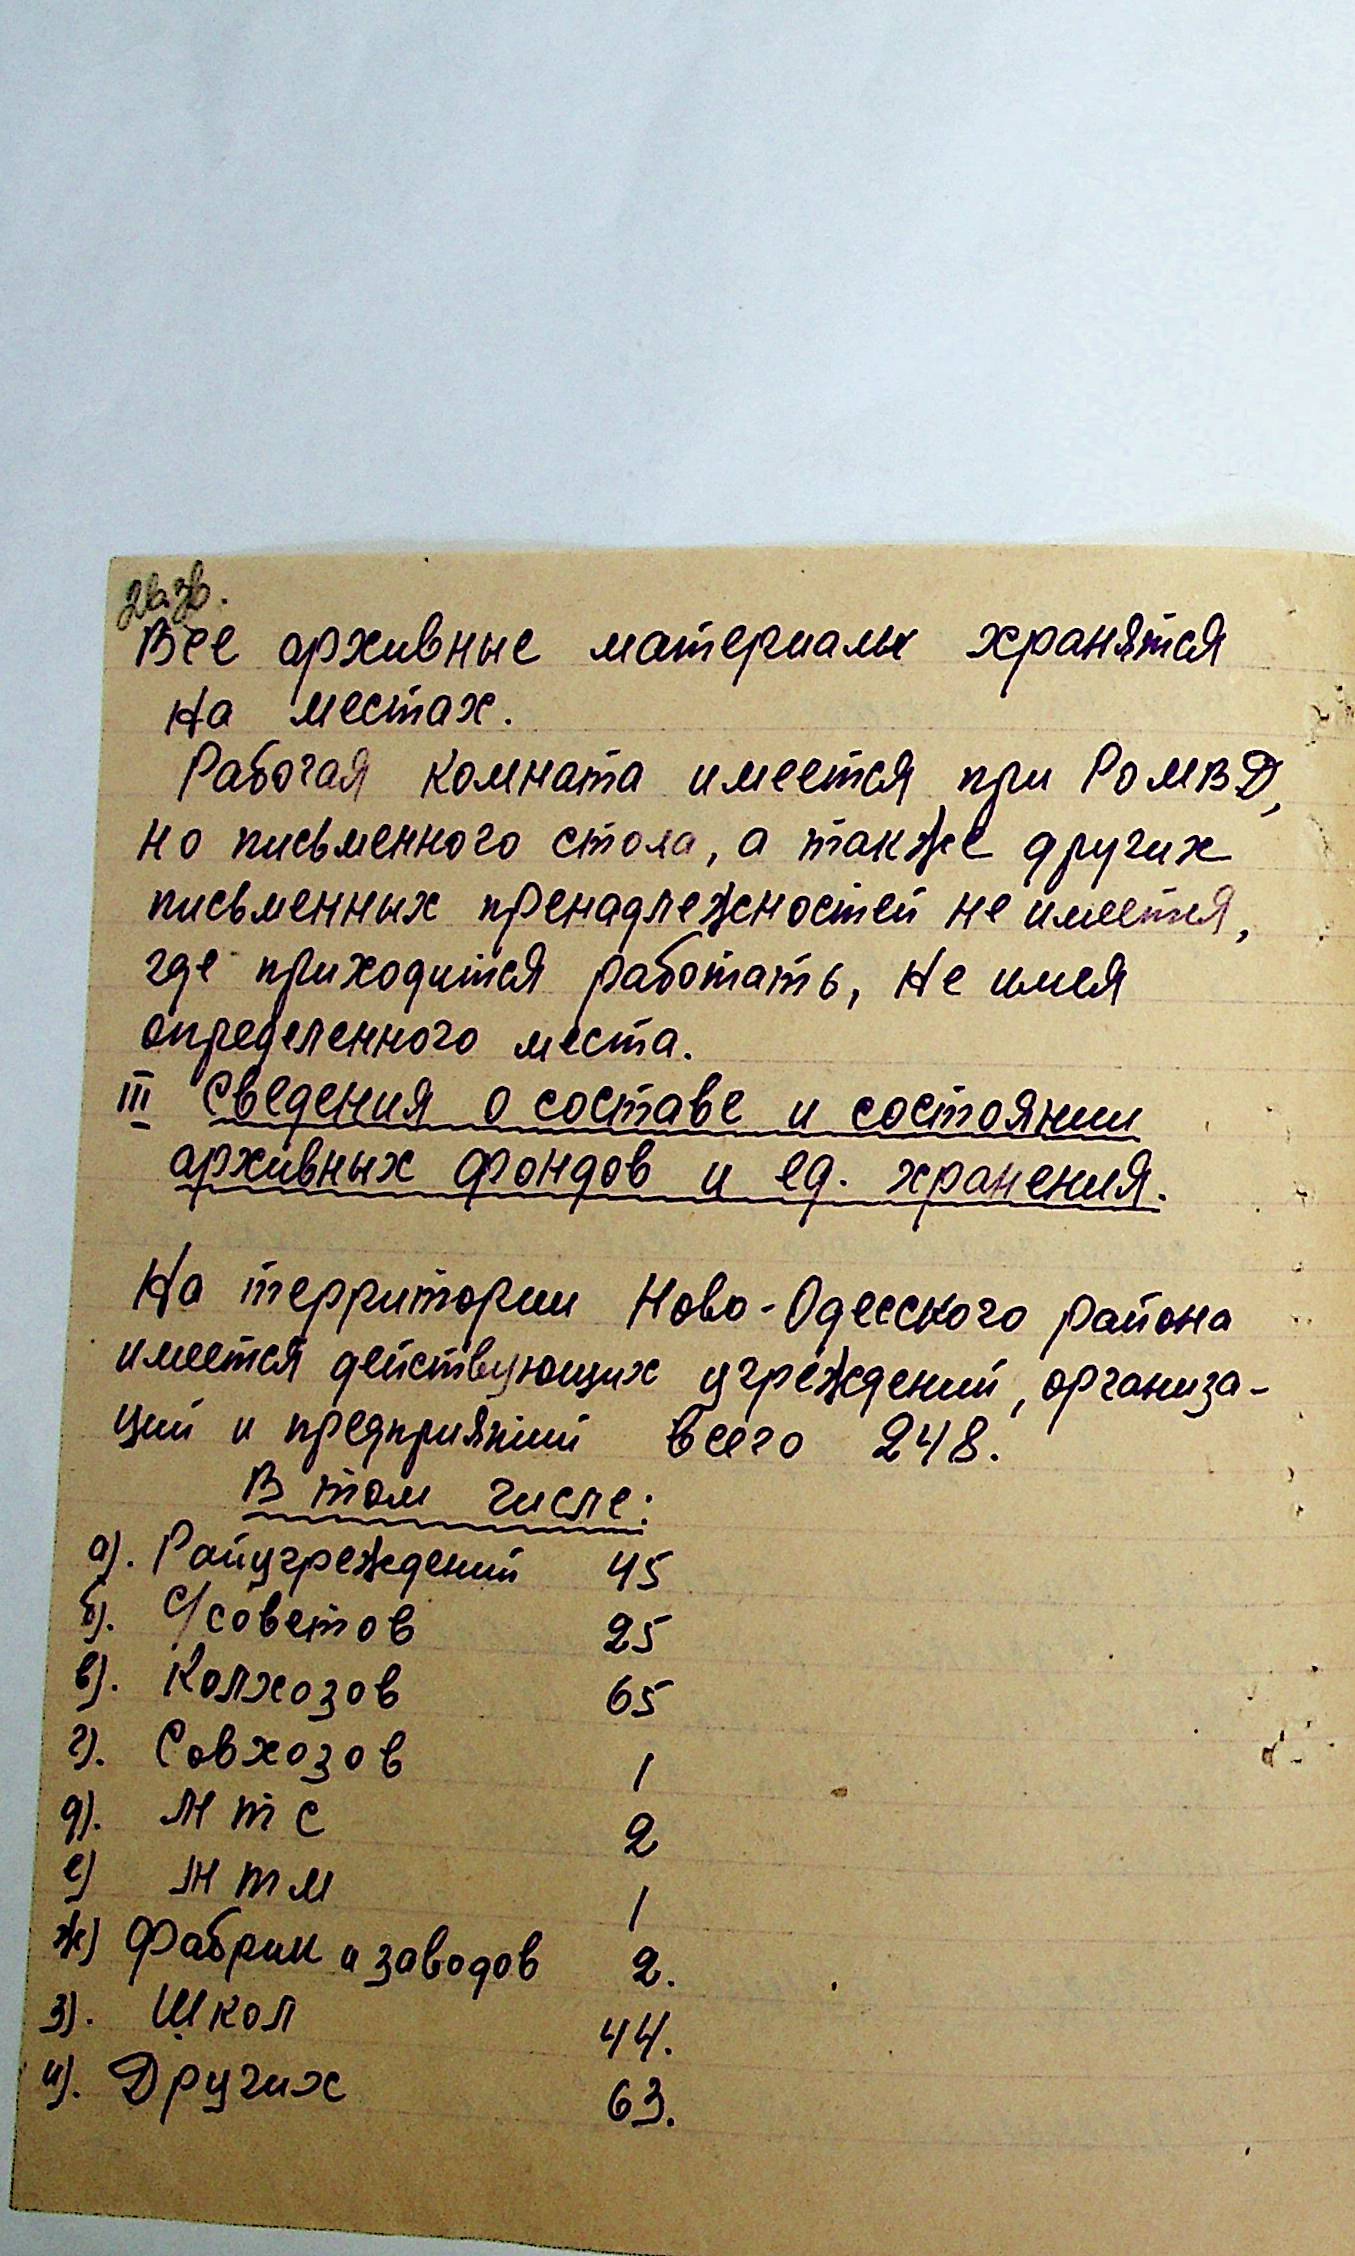 Все архивные материалы хранятся
на местах.
Рабочая комната имеется при РоМВД,
но письменного стола, а также других
письменных пренадлежностей не имеется,
где приходится работать, не имея
определенного места.
III Сведения о составе и состоянии
архивных фондов и ед. хранения.
На территории Ново-Одесского района
имеется действующих учреждений, организа-
ций и предприятий всего 248.
В том числе:
а). Райучреждений 45
б). С/советов 25
в). Колхозов 65
г). Совхозов 1
д). МТС 2
е) МТМ 1
ж) Фабрик и заводов 2.
з). Школ 44.
и). Других 63.